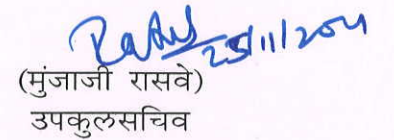 25/11/2011
(मुंजाजी रासवे)
उपकुलसचिव